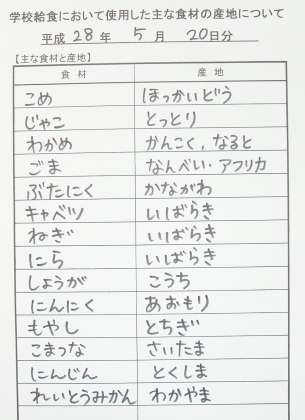 学校給食において使用した主な食材の産地について
平成 28 年 5 月 20 日分
【主な食材と産地】
食材 産地
こめ ほっかいどう
じゃこ とっとり
わかめ かんこく，なると
ごま なんべい・アフリカ
ぶたにく かながわ
キャベツ いばらき
ねぎ いばらき
にら いばらき
しょうが こうち
にんにく あおもり
もやし とちぎ
こまつな さいたま
にんじん とくしま
れいとうみかん わかやま